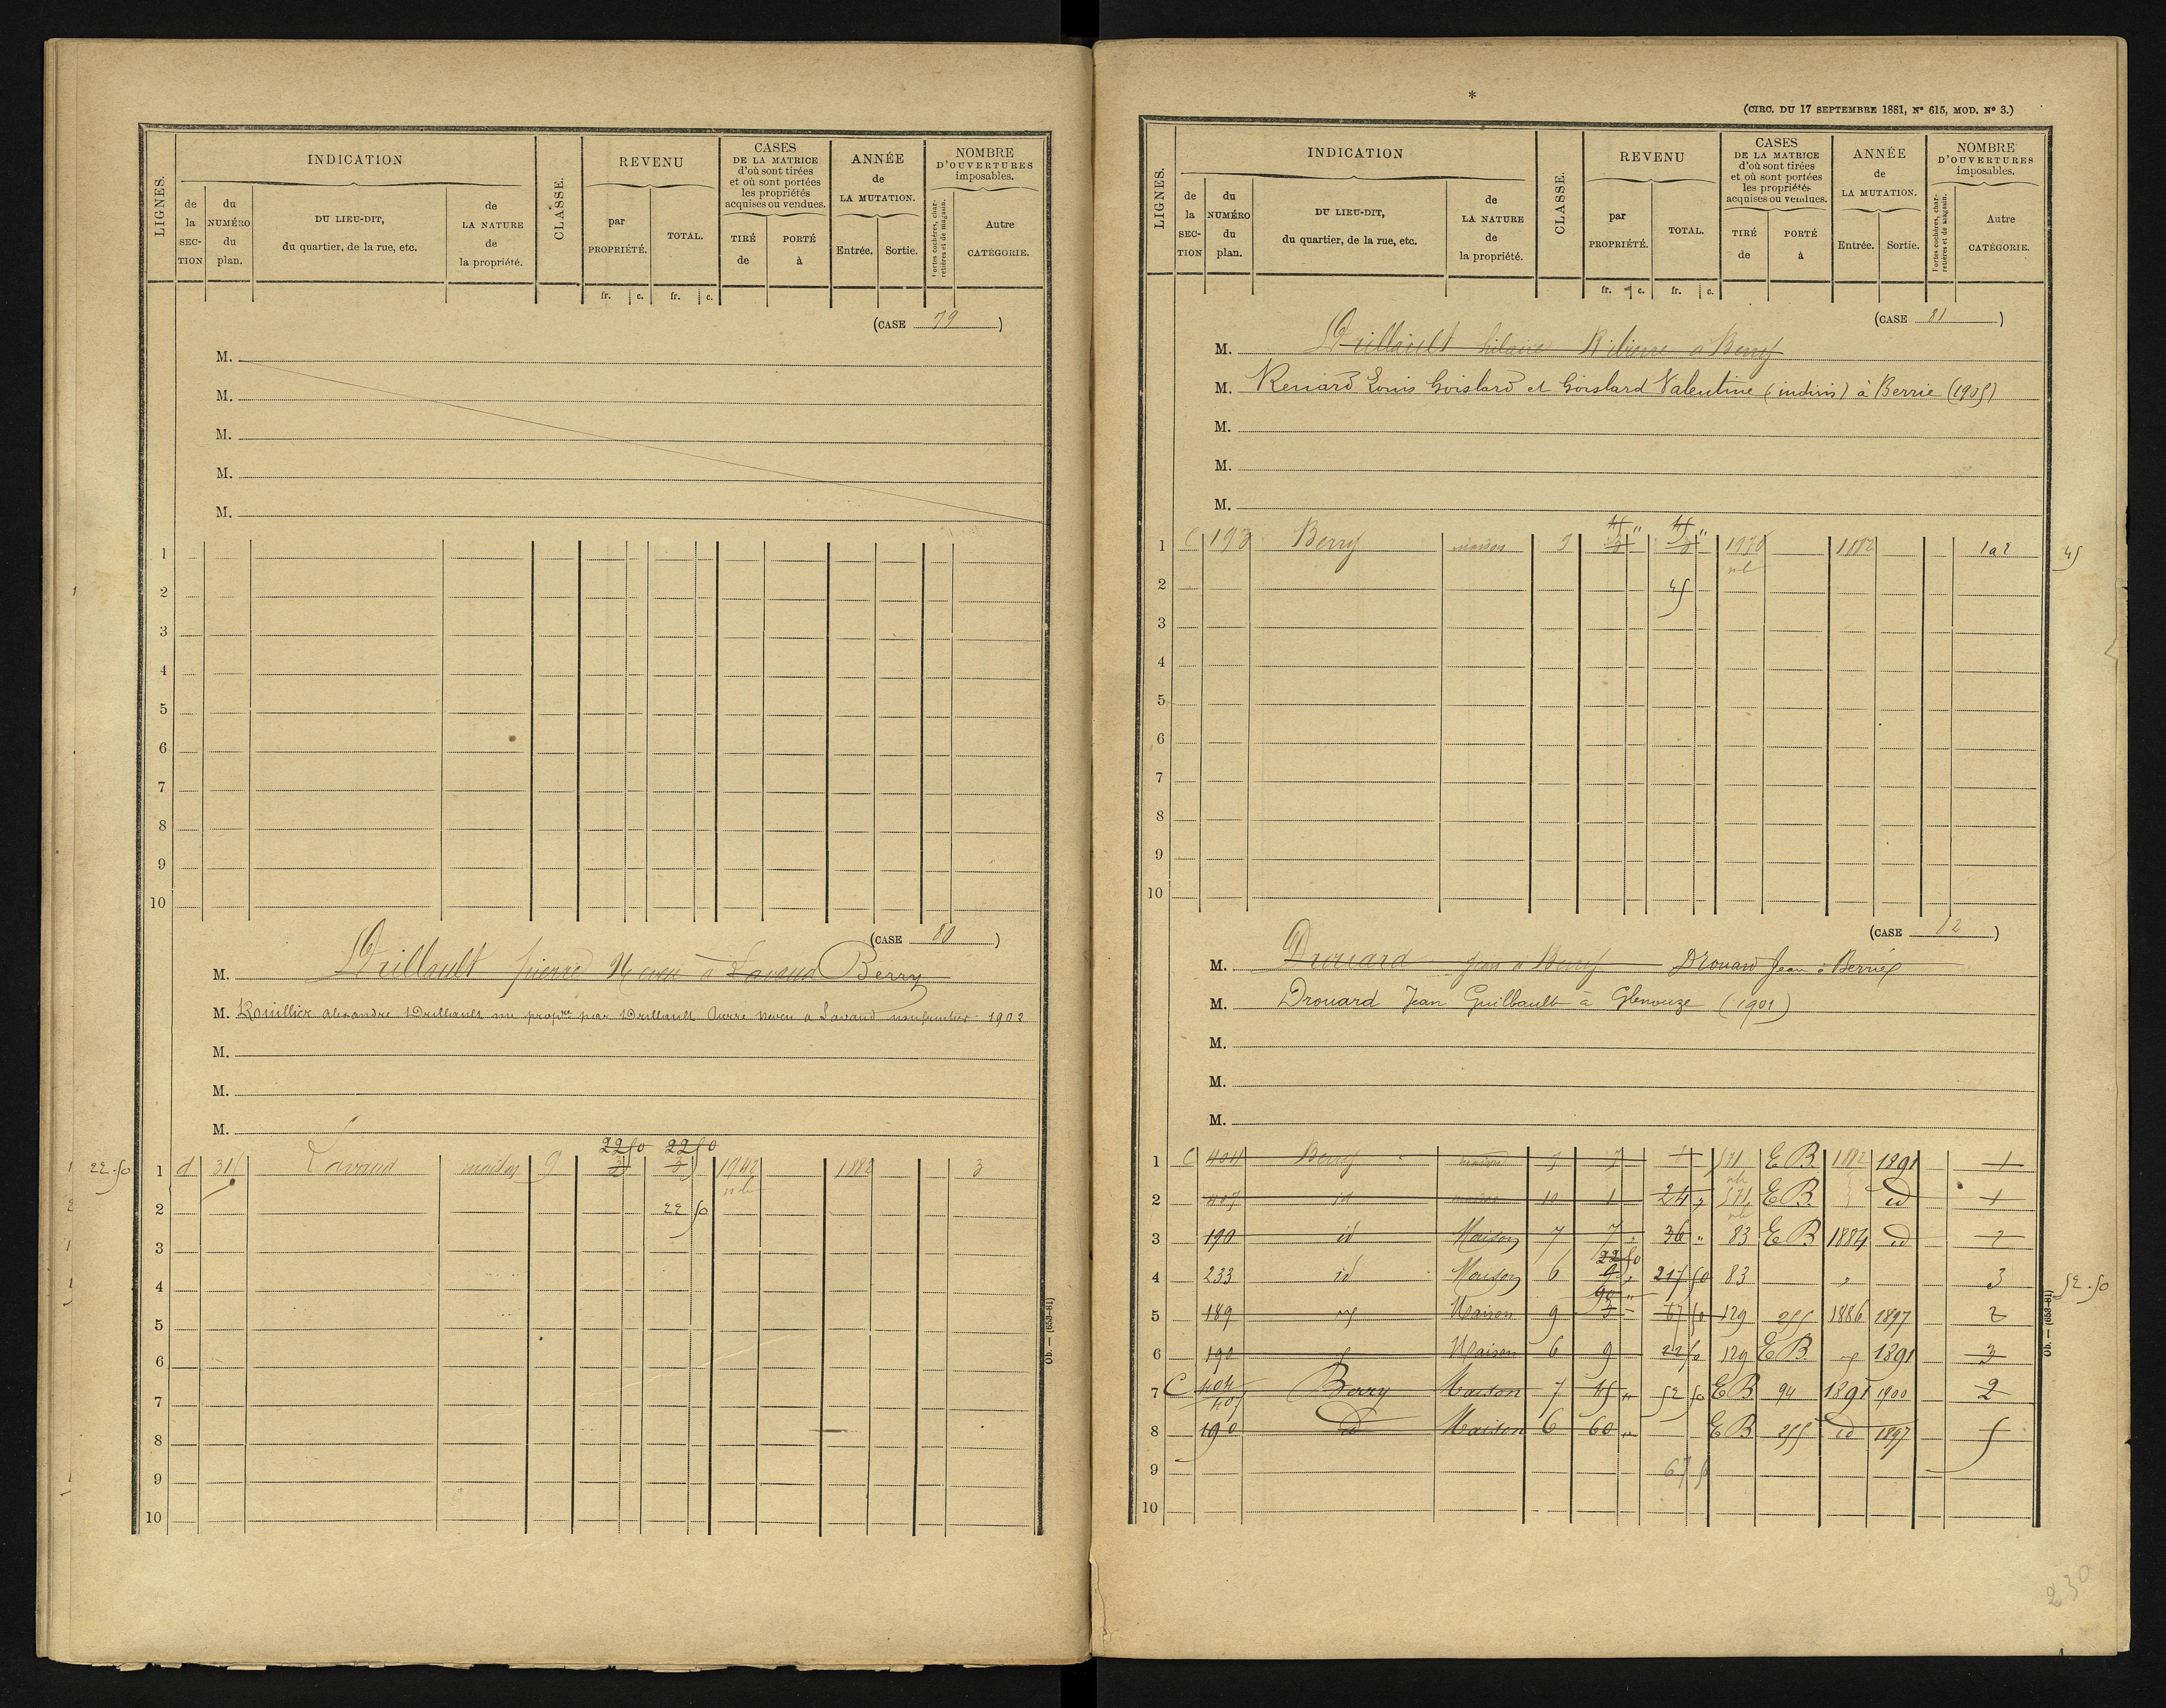 INDICATION
REVENU
CASES
DE LA MATRICE
d'où sont tirées
et où sont portées
les propriétés
acquises ou vendues.
ANNÉE
de
LA MUTATION.
NOMBRE
D'OUVERTURES
imposables.
LIGNES.
de
la
SEC-
TION
du
NUMÉRO
du
plan.
DU LIEU-DIT,
du quartier, de la rue, etc.
de
LA NATURE
de
la propriété.
CLASSE.
par
PROPRIÉTÉ.
TOTAL.
TIRÉ
de
PORTÉ
à
Entrée.
Sortie.
Portes cochères, char-
retières et de magasin.
Autre
CATÉGORIE.
fr. c. fr. c.
(CASE 79 )
M.
M.
M.
M.
M.
1
2
3
4
5
6
7
8
9
10
(CASE 80 )
M. Drillault pierre Neveu à Lavaud Berry
M. Rouillier alexandre Drillault nu propre par Drillault Pierre neveu à Lavaud usufruitier 1903
M.
M.
M.
22 50 22 50
22-50 1 d 315 Lavaud maison 9 3 3 1942 1882 3
2 22 50
3
4
5
6
7
8
9
10
Ob. — (653-81)
*
(CIRC. DU 17 SEPTEMBRE 1881, N° 615, MOD. N° 3.)
INDICATION
REVENU
CASES
DE LA MATRICE
d'où sont tirées
et où sont portées
les propriétés
acquises ou vendues.
ANNÉE
de
LA MUTATION.
NOMBRE
D'OUVERTURES
imposables.
LIGNES.
de
la
SEC-
TION
du
NUMÉRO
du
plan.
DU LIEU-DIT,
du quartier, de la rue, etc.
de
LA NATURE
de
la propriété.
CLASSE.
par
PROPRIÉTÉ.
TOTAL.
TIRÉ
de
PORTÉ
à
Entrée.
Sortie.
Portes cochères, char-
retières et de magasin.
Autre
CATÉGORIE.
fr. c. fr. c.
(CASE 81 )
M. Drillault hilaire à Berry
M. Renard Louis Goislard et Goislard Valentine (indivis) à Berrie (1905)
M.
M.
M.
45 " 45 "
1 C 193 Berry maison 9 3 3 1970 1882 1 a 2 45
2 45
3
4
5
6
7
8
9
10
(CASE 82 )
M. Drouard Jean à Berry Drouard Jean à Berrie
M. Drouard Jean Guilbault à Glenouze (1901)
M.
M.
M.
1 C 404 Berry maison 7 7 571 E B 1882 1891 1
2 407 id maison 10 1 24 " 571 E B id 1
3 190 id Maison 7 7 " 36 " 83 E B 1884 id 2
22 50
4 233 id Maison 6 9 " 217 50 83 " 3 52-50
90 "
5 189 Maison 9 3 67 50 129 255 1886 1897 2
6 190 Maison 6 9 22 50 129 E B 1891 3
7 C 404 407 Berry Maison 7 45 " 52 50 E B 94 1891 1900 2
8 190 id Maison 6 60 " E B 255 id 1897 5
9 67 5
10
Ob. — (653-81)
230